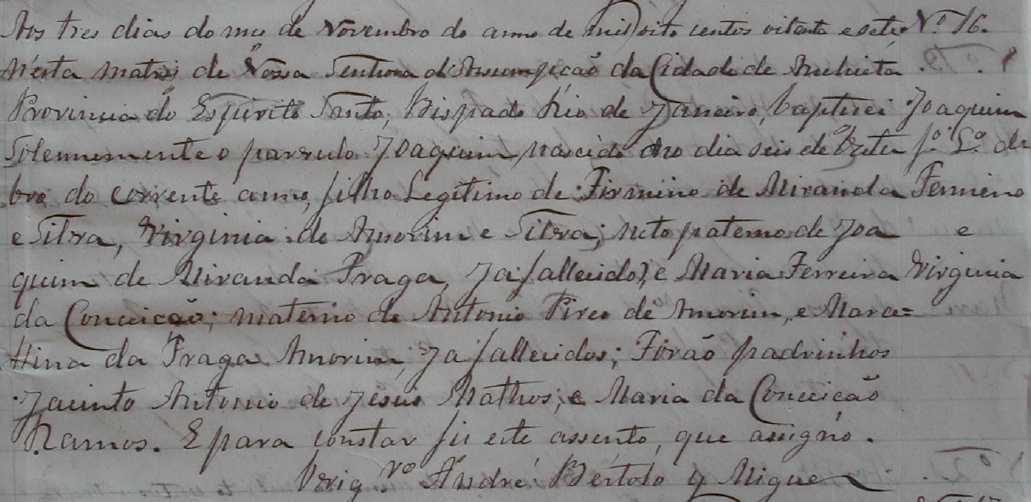 Aos tres dias do mes de Novembro do anno de mil oito centos oitenta e sete Nº 16.
n'esta matriz de Nossa Senhora d'Assumpção da Cidade de Anchieta
Provincia do Espirito Santo, Bispado Rio de Janeiro, baptizei Joaquim
Solennemente o parvulo Joaquim, nascido no dia seis de Outu fº Lº de
bro do corrente anno, filho Legitimo de Firmino de Miranda Firmino
e Silva, Virginia de Amorim e Silva; neto paterno de Joa e
quim de Miranda Fraga, Ja fallecido, e Maria Ferreira Virginia
da Conceição; materno de Antonio Pires de Amorim, e Marce=
llina da Fraga Amorim; Ja fallecidos; Forão padrinhos
Jacinto Antonio de Jesus Mathos, e Maria da Conceição
Ramos. E para constar fiz este assento, que assigno.
Vigrº André Bertolo y Miguel